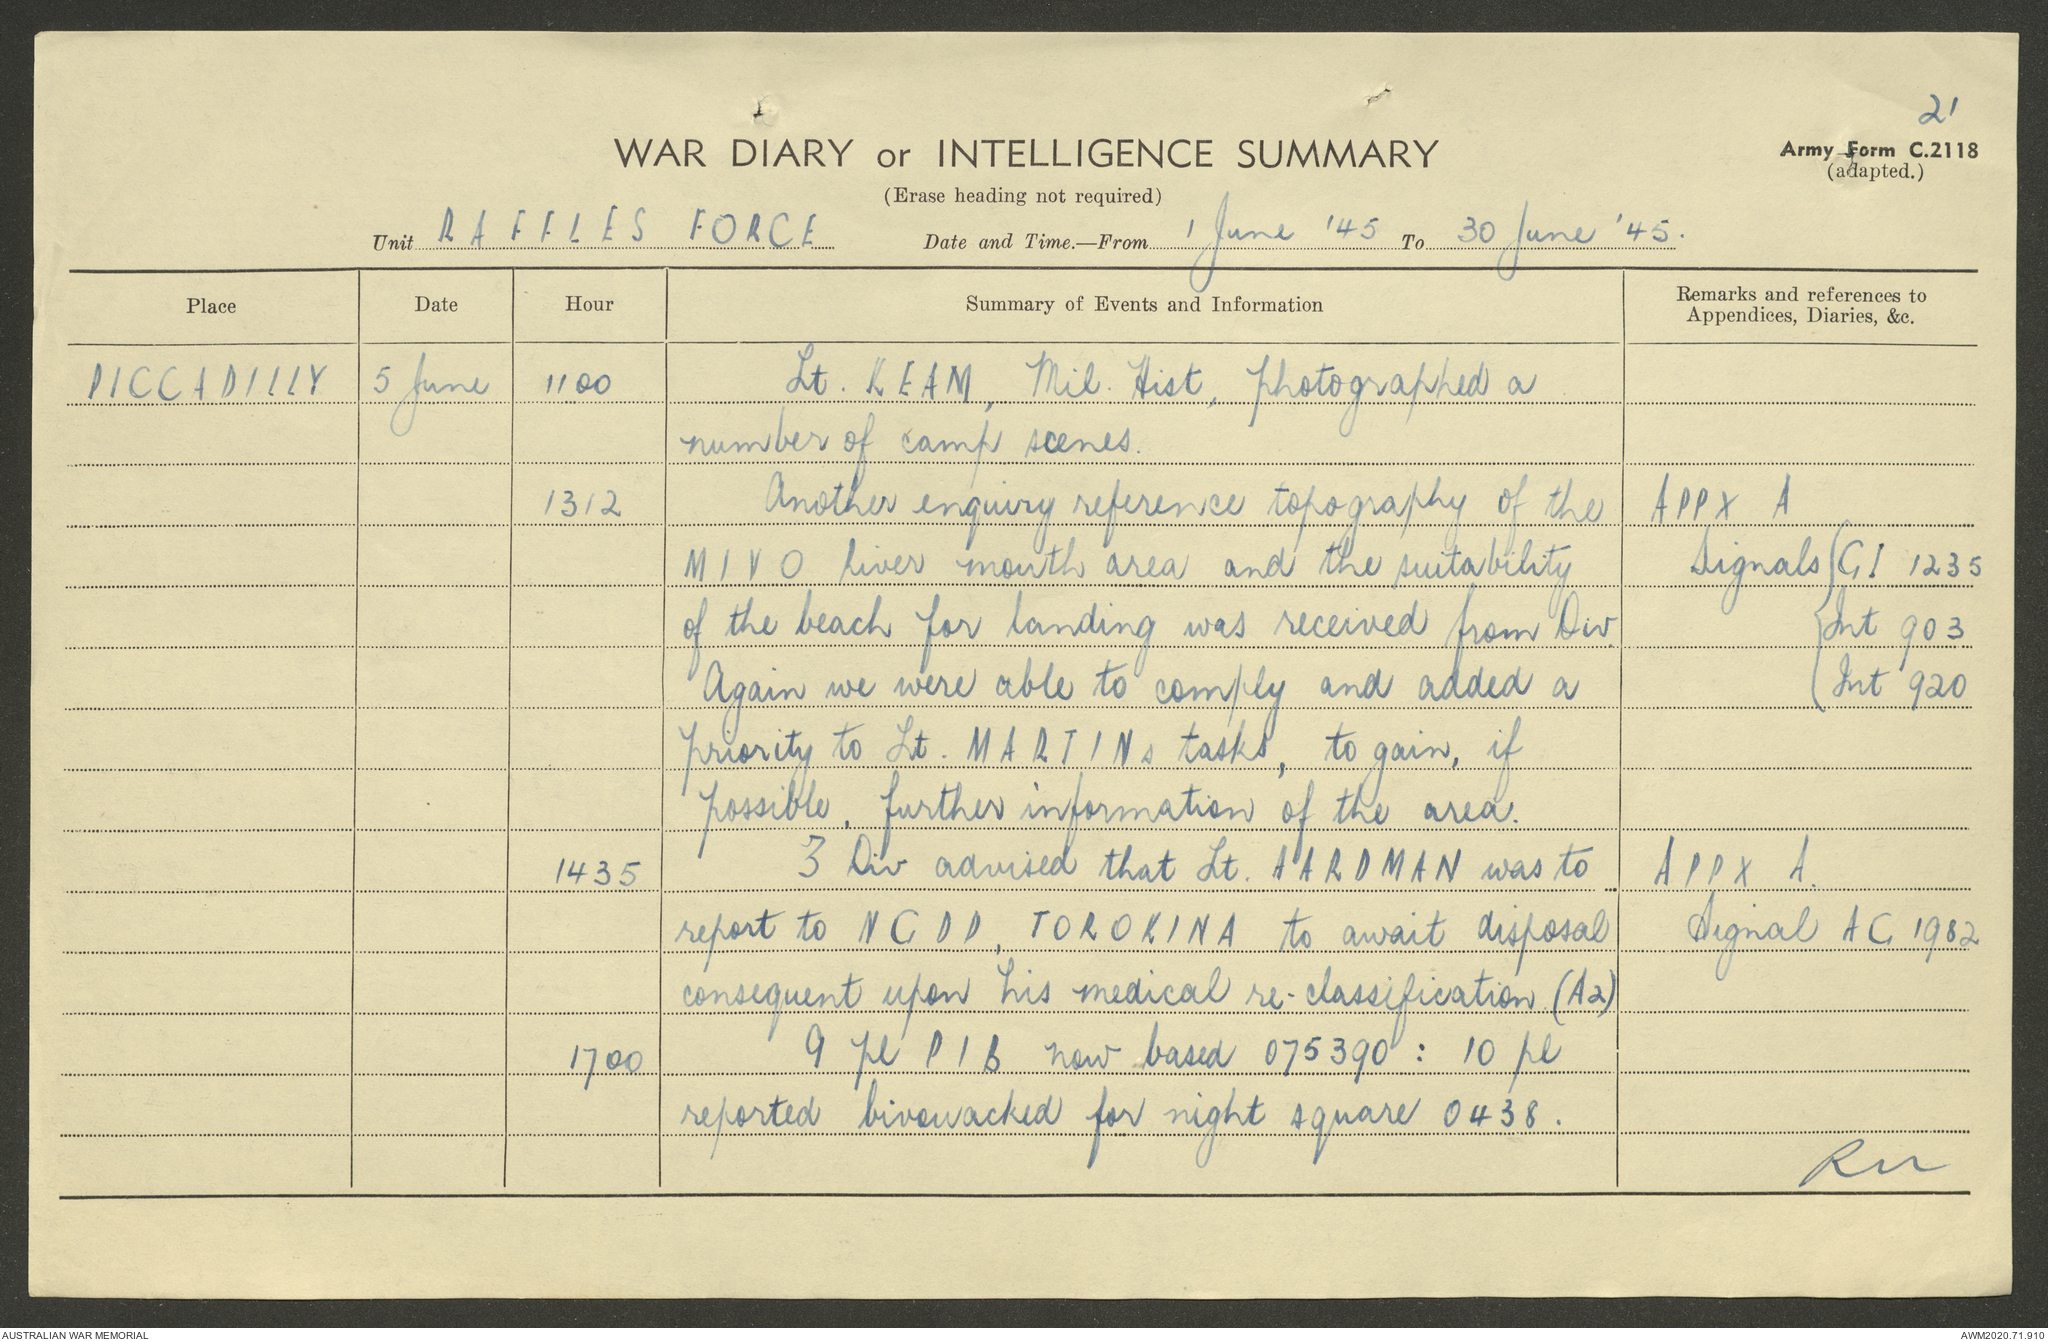 21
WAR DIARY or INTELLIGENCE SUMMARY
Army Form C.2118
(adapted.)
(Erase heading not required)
Unit RAFFLES FORCE Date and Time.—From 1 June '45 To 30 June '45.
Place Date Hour Summary of Events and Information Remarks and references to
Appendices, Diaries, &c.
PICCADILLY 5 June 1100 Lt. KEAM, Mil. Hist, photographed a
number of camp scenes.
1312 Another enquiry reference topography of the APPX A
MIVO River mouth area and the suitability Signals GI 1235
of the beach for landing was received from Div. Int 903
Again we were able to comply and added a Int 920
priority to Lt. MARTINs tasks, to gain, if
possible, further information of the area.
1435 3 Div advised that Lt. AARDMAN was to APPX A.
report to NGDD, TOROKINA to await disposal Signal AC 1982
consequent upon his medical re-classification (A2)
1700 9 pl PIB now based 075390 : 10 pl
reported bivouacked for night square 0438.
AUSTRALIAN WAR MEMORIAL
AWM2020.71.910